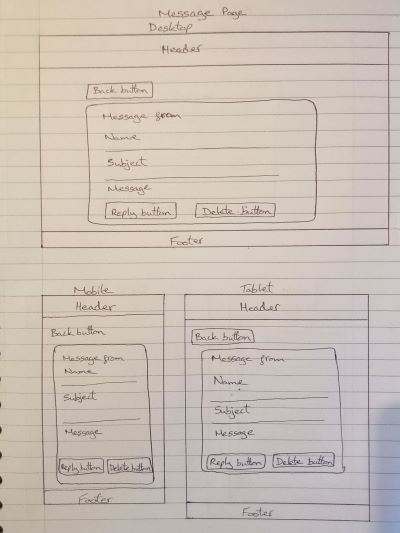 Message Page
Desktop
Header
Back button
Message from
Name
Subject
Message
Reply button Delete button
Footer
Mobile
Header
Back button
Message from
Name
Subject
Message
Reply button Delete button
Footer
Tablet
Header
Back button
Message from
Name
Subject
Message
Reply button Delete button
Footer